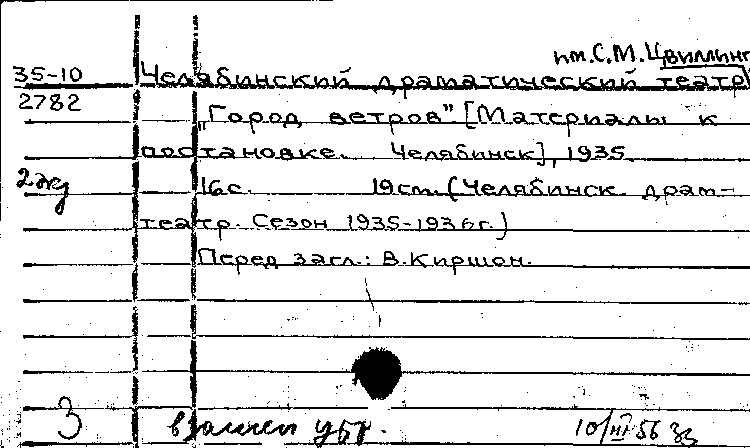 им. С.М. Цвиллинг
35-10 Челябинский драматический театр
2782 „Город ветров". [Материалы к
постановке. Челябинск], 1935.
2 экз 16 с. 19 см. (Челябинск. драм-
театр. Сезон 1935-1936 г.)
Перед загл.: В. Киршон.
З взамен убт. 10/III 56